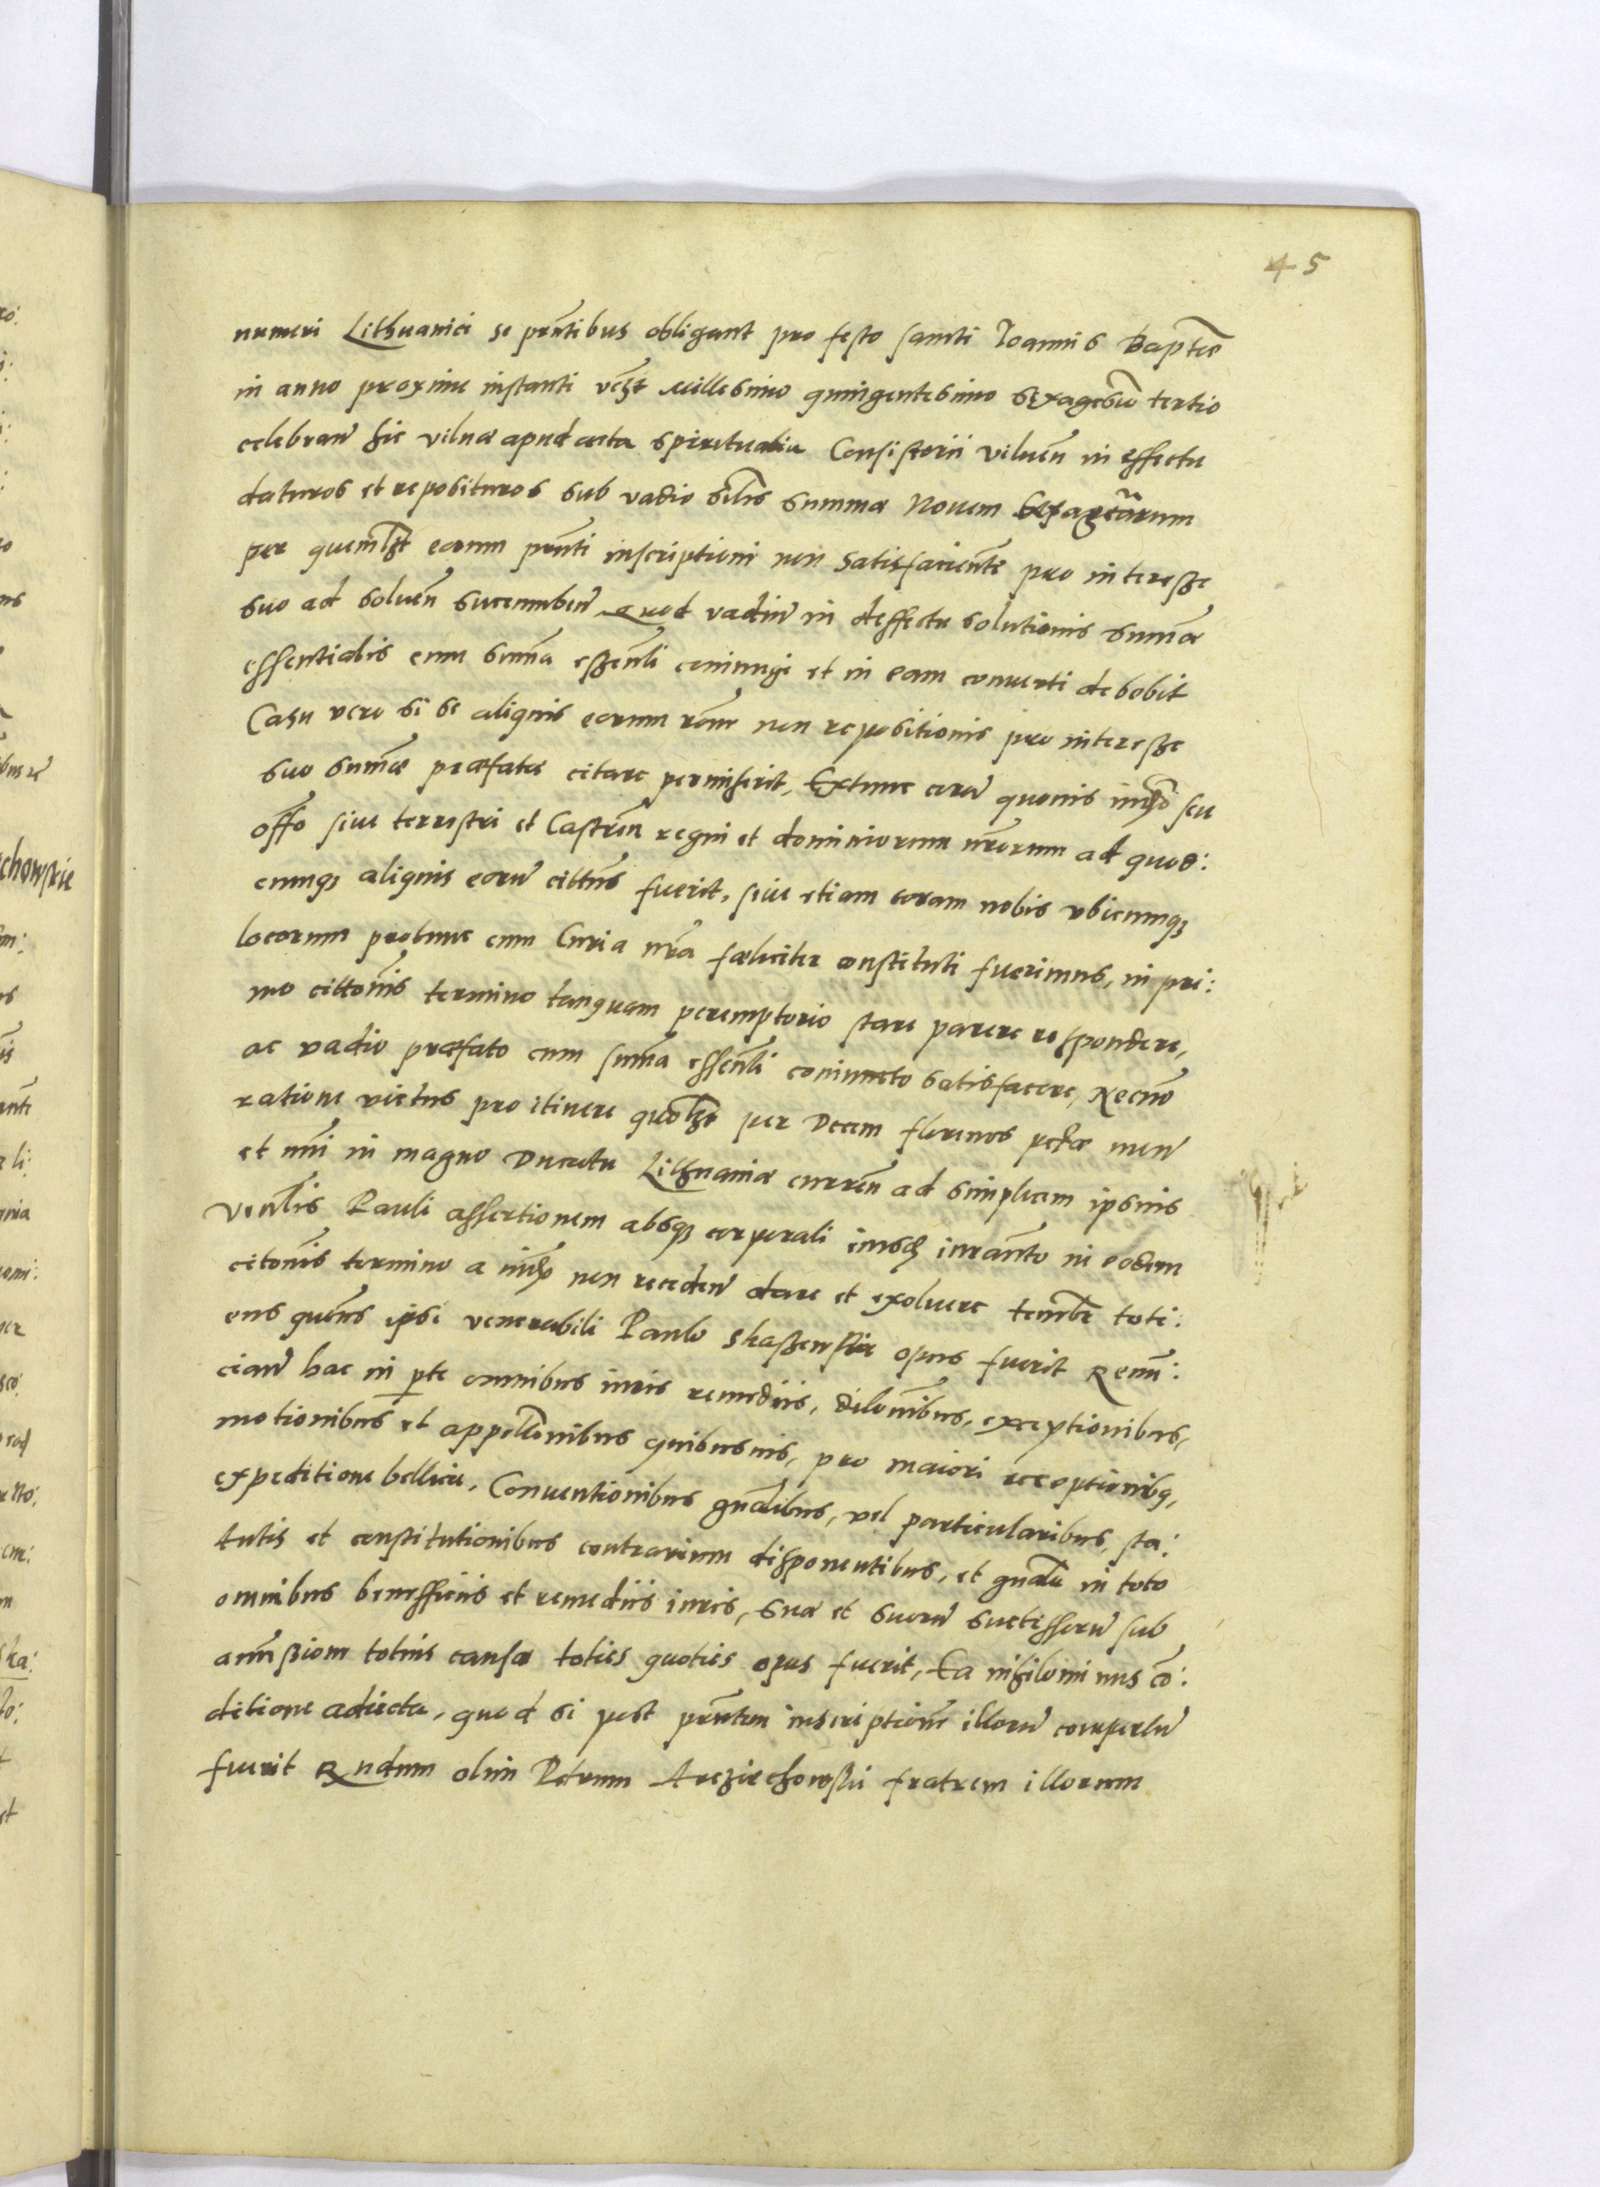 45
numeri Lithuanici se prñtibus obligant pro festo sancti Joannis Baptẽ
in anno proxime instanti vczt Millesimo quingentesimo sexagesiõ tertio
celebrañ hic vilnæ apud acta spiritualia Consistorii vilneñ in effectu
daturos et reposituros sub vadio silis summæ Novem sexagenarum
per quemlzt eorum prñti inscriptioni non satisfacientẽ pro interesse
suo ad solueñ succumbeñ Quod vadiũ in deffectu solutionis sumæ
essentialis cum suma essenli coniungi et in eam conuerti debebit
Casu vero si se aliquis eorum rone non repositionis pro interesse
suo sumæ præfatæ citare permiserit, Extunc corã quouis iudo seu
offo siue terrestri et Castreñ regni et dominiorum nrorum ad quod:
cunqz aliquis eorũ cittus fuerit, siue etiam coram nobis vbicunqz
locorum protunc cum Curia nra fœliciter constituti fuerimus, in pri:
mo cittonis termino tanquam peremptorio stare parere respondere,
ac vadio præfato cum suma essenli coniuncto satisfacere, Necnõ
ratione victus pro itinere quolzt per Decem florenos petæ mun
et nni in magno Ducatu Lithuaniæ curreñ ad simplicem ipsius
Venlis Pauli assertionem absqz corporali eiusdẽ iuranto in eodem
citonis termino a iudo non recedeñ dare et exoluere tenebr toti:
ens quotiens ipsi venerabili Paulo Skaszewskie opus fuerit Renũ:
ciañ hac in pte omnibus iuris remediis, dilonibus, exceptionibus,
motionibus et appellonibus quibusuis, pro maiori receptionibq,
expeditione bellica, Conuentionibus gnalibus, vel particularibus, sta:
tutis et constitutionibus contrarium disponentibus, et gnale in toto
omnibus benefficiis et remediis iuris, suæ et suorũ suctissorũ sub
amissiom totius causæ toties quoties opus fuerit, Ea nihilominus cõ:
ditione adiecta, quod si post prñtem inscriptionẽ illorũ compertũ
fuerit Rndum olim Petrum Arcziechowski fratrem illorum